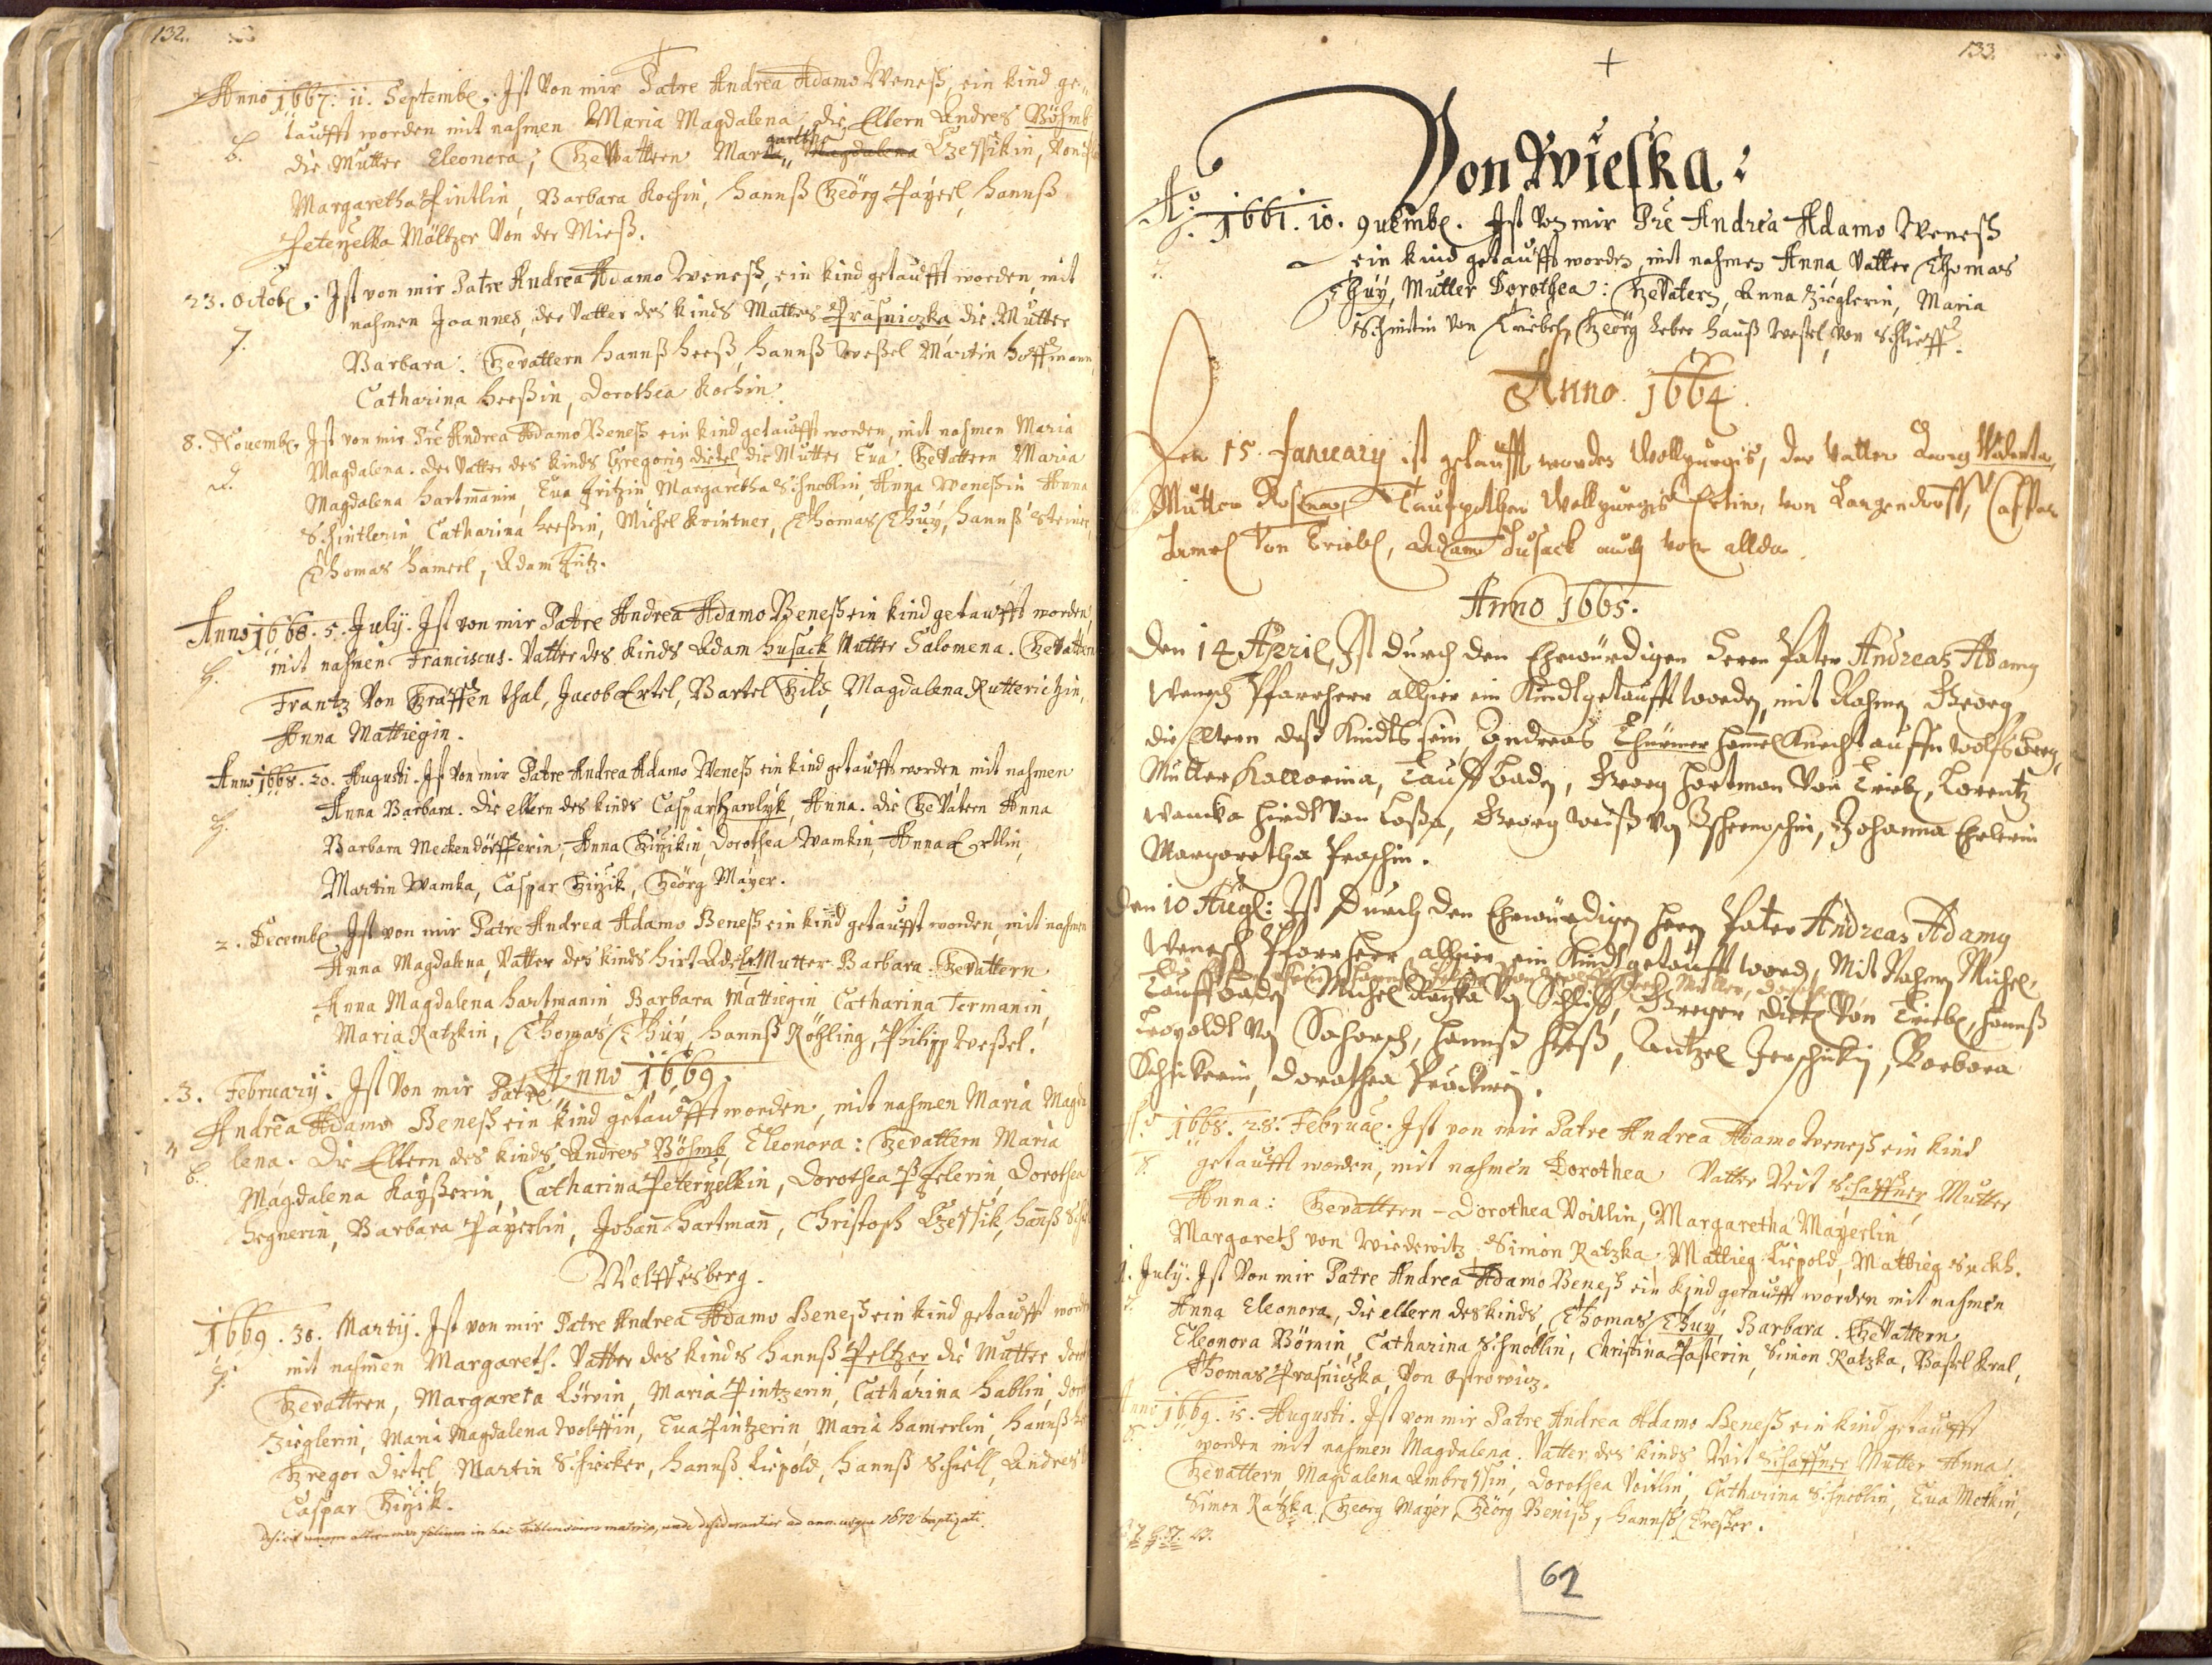 132.
Anno 1667. 11. Septemb. Ist von mir Patre Andrea Adamo Weneß, ein kind ge„
taufft worden mit nahmen Maria Magdalena, die Eltern Andres Böhmb
B. die Mutter Eleonora; Gevattern Mar„ garetha Magdalena Czessikin, von
Margaretha Pintlin, Barbara Kochin, Hannß Georg Payerl, Hannß
Peterzelka Mältzer von der Mieß.
23. Octob. Ist von mir Patre Andrea Adamo Weneß, ein kind getaufft worden, mit
nahmen Joannes, der Vatter des kinds Mattes Prasniczka die Mutter
P. Barbara: Gevattern Hannß Heeß, Hannß Weßel Martin Hoffmann,
Catharina Heeßin, Dorothea Kochin.
8. Novemb. Ist von mir Pre Andrea Adamo Beneß ein kind getaufft worden, mit nahmen Maria
D. Magdalena. der Vatter des kinds Gregorig Dietel die Mutter Eua. Gevattern Maria
Magdalena Hartmanin, Eua Fritzin, Margaretha Schnoblin, Anna Weneßin Anna
Schintlerin Catharina Heeßin, Michel Krintner, Thomas Thuy, Hannß Steiner,
Thomas Hamerl, Adam Fritz.
Anno 1668. 5. July. Ist von mir Patre Andrea Adamo Beneß ein kind getaufft worden,
H. mit nahmen Franciscus. Vatter des kinds Adam Husack Mutter Salomena. Gevattern
Frantz von Graffenthal, Jacob Ertel, Bartel Hild, Magdalena Rutterichin,
Anna Mattiegin.
Anno 1668. 20. Augusti. Ist von mir Patre Andrea Adamo Weneß ein kind getaufft worden mit nahmen
H. Anna Barbara. Die eltern des kinds Caspar Hawlyk, Anna. die Gevätern Anna
Barbara Meckendörfferin, Anna Gizikin, Dorothea Wamkin, Anna Ertlin,
Martin Wamka, Caspar Gizik, Georg Mayer.
2. Decemb. Ist von mir Patre Andrea Adamo Beneß ein kind getaufft worden, mit nahmen
Anna Magdalena, Vatter des kinds Hirt Mutter Barbara: Gevattern
Anna Magdalena Hartmanin Barbara Mattiegin Catharina Termanin,
Maria Ratzkin, Thomas Thuy, Hannß Röhling, Philipp Weßel.
Anno 1669.
3. February. Ist von mir Patre
Andrea Adamo Beneß ein kind getaufft worden, mit nahmen Maria Magda
B. lena. Die Eltern des kinds Andres Böhmb, Eleonora: Gevattern Maria
Magdalena Kayßerin, Catharina Peterzelkin, Dorothea Pfelerin, Dorothea
Hegnerin, Barbara Payerlin, Johan Hartman, Christoph Czessik, Hanß
Wolffesberg.
1669. 30. Marty. Ist von mir Patre Andrea Adamo Beneß ein kind getaufft worden
P. mit nahmen Margareth. Vatter des kinds Hannß Peltzer die Mutter
Gevattern, Margareta Lörvin, Maria Pintzerin, Catharina Hablin,
Zieglerin, Maria Magdalena Wolffin, Eua Pintzerin, Maria Hamerlin, Hannß
Gregor Dietel, Martin Schicker, Hannß Liepold, Hannß Schiell, Andres
Caspar Gizik.
in hac matrica, unde desiderantur ad ann. usque 1672 baptizati.
133.
Von Wieska:
Aō 1661. 10. 9uemb. Ist von mir Pre Andrea Adamo Weneß
ein kind getaufft worden, mit nahmen Anna, Vatter Thomas
Thuy, Mutter Dorothea: Gevatern, Anna Zieglerin, Maria
Schmitin von Triebel, Georg Leber Hanß Weßel, von Schlieff.
Anno 1664
Den 15. January ist getaufft worden Wollgurgis, der Vatter Georg
Mutter Rosina, Taufpathen Wollgurgis Ertin, von Langendorff, Caspar
Hamel von Triebl, Adam Husack auch von allda.
Anno 1665.
Den 14 April, Ist durch den Ehrwürdigen Herrn Pater Andreas Adamy
Wenesch Pfarrherr alhier ein Kindt getaufft worden, mit Nahmen Georg,
die Eltern deß Kindts sein, Andreas Thürmer Hamel Knecht auffm Wolfsberg,
Mutter Kattarina, Tauff baden, Georg Hartman von Triebl, Lorentz
Wamka Hirdt von Loßa, Georg Weiß von Tschernoschin, Johanna Ehrlerin
Margaretha Praschin.
Den 10 Aug: Ist Durch den Ehrwürdigen Herrn Pater Andreas Adamy
Wenesch Pfarrherr allhier ein Kindt getaufft word, Mit Nahmen Michel,
Tauffbaden Michel Ratzka von Schlieff, Greger Dietl von Triebl, Hannß
Leopoldt von Saherß, Hannß Heeß, Wentzel Jerschickij, Barbara
Schickerin, Dorathea Pruckerin.
Aō 1668. 28. Februa. Ist von mir Patre Andrea Adamo Weneß ein kind
S. getaufft worden, mit nahmen Dorothea Vatter Veit Schaffner Mutter
Anna: Gevattern - Dorothea Voitlin, Margaretha Mayerlin
Margareth von Wiedewitz, Simon Ratzka, Mattieg Liepold, Mattieg Suckh.
1. July. Ist von mir Patre Andrea Adamo Beneß ein kind getaufft worden mit nahmen
Anna Eleonora, die eltern des kinds, Thomas Thuy, Barbara. Gevattern
Eleonora Bömin, Catharina Schnoblin, Christina Pasterin, Simon Ratzka, Bastel Kral,
Thomas Prasniczka, von Ostrowicz.
Anno 1669. 15. Augusti. Ist von mir Patre Andrea Adamo Beneß ein kind getaufft
S. worden mit nahmen Magdalena. Vatter des kinds Veit Schaffner Mutter Anna.
Gevattern Magdalena Ambrossin, Dorothea Voitlin, Catharina Schnoblin, Eua Metkin,
Simon Ratzka, Georg Mayer, Georg Beniß, Hannß Trescher.
62